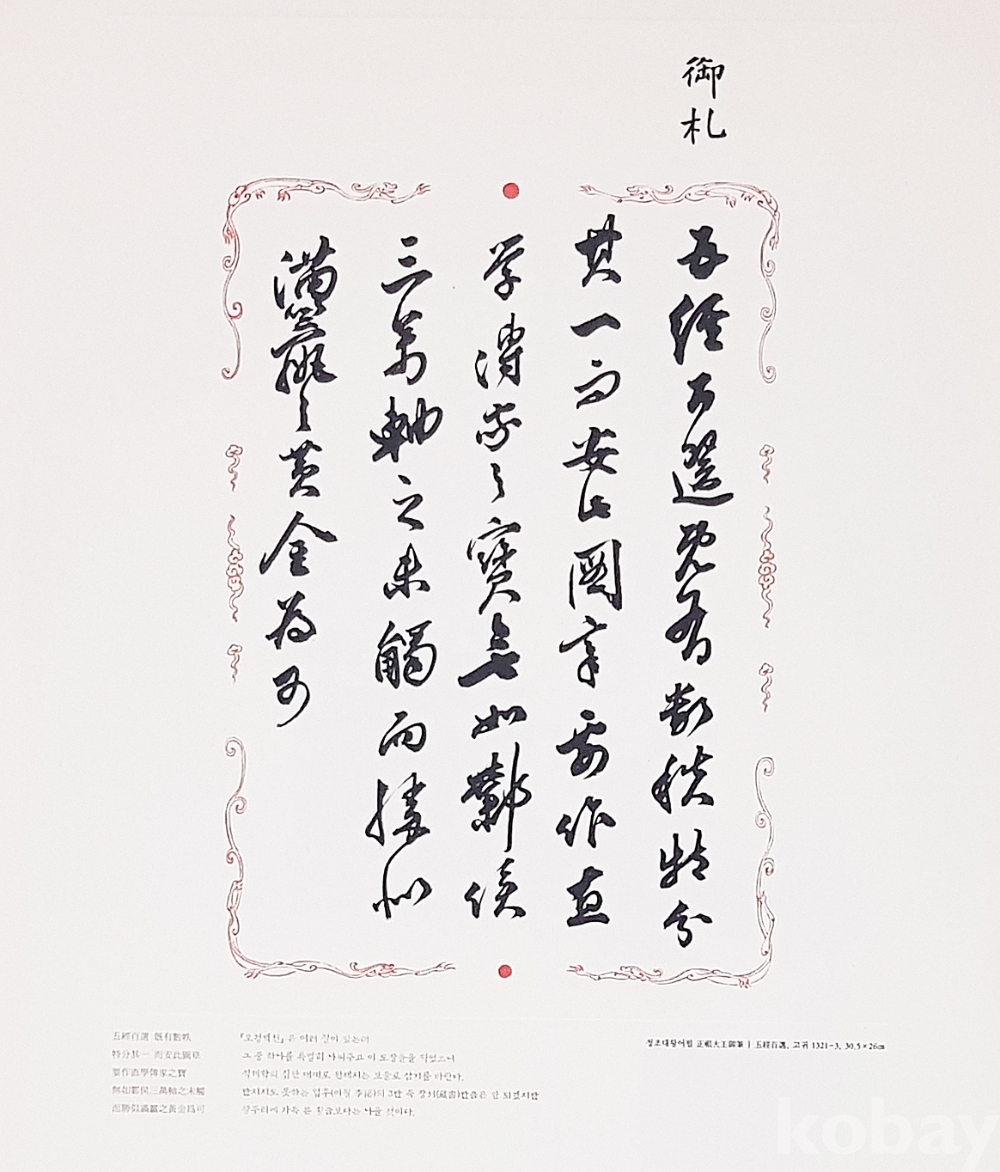 御札
五經百選既有數秩特分
其一而安此圖章要作直
学傳家之寶無如鄴侯
三萬軸之未觸而勝似
滿籝之黃金為可
五經百選 旣有數帙
特分其一 而安此圖章
要作直學傳家之寶
無如鄴侯三萬軸之未觸
而勝似滿籝之黃金爲可
『오경백선』은 여러 질이 있는데
그 중 하나를 특별히 나눠주고 이 도장을 찍었으니
직학의 집안 대대로 전해지는 보물로 삼기를 바란다.
만져지지도 못하는 업후(이필 李泌)의 3만 축 장서(藏書)만큼은 안 되겠지만
광주리에 가득 찬 황금보다는 나을 것이다.
정조대왕어필 正祖大王御筆 | 五經百選, 고귀 1321-3, 30.5×26㎝
kobay